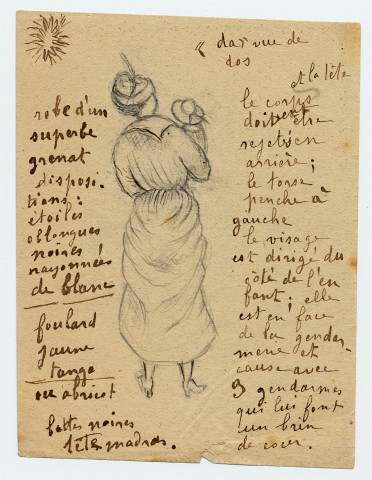 « da » vue de
dos
robe d'un
superbe
grenat
disposi-
tions :
étoiles
oblongues
noires
rayonnées
de blanc
foulard
jaune
tango
ou abricot
bottes noires
tête madras.
et la tête
le corps
doivent être
rejetés en
arrière ;
le torse
penche à
gauche
le visage
est dirigé du
côté de l'en
fant ; elle
est en face
de la gendar-
merie et
cause avec
3 gendarmes
qui lui font
un brin
de cour.